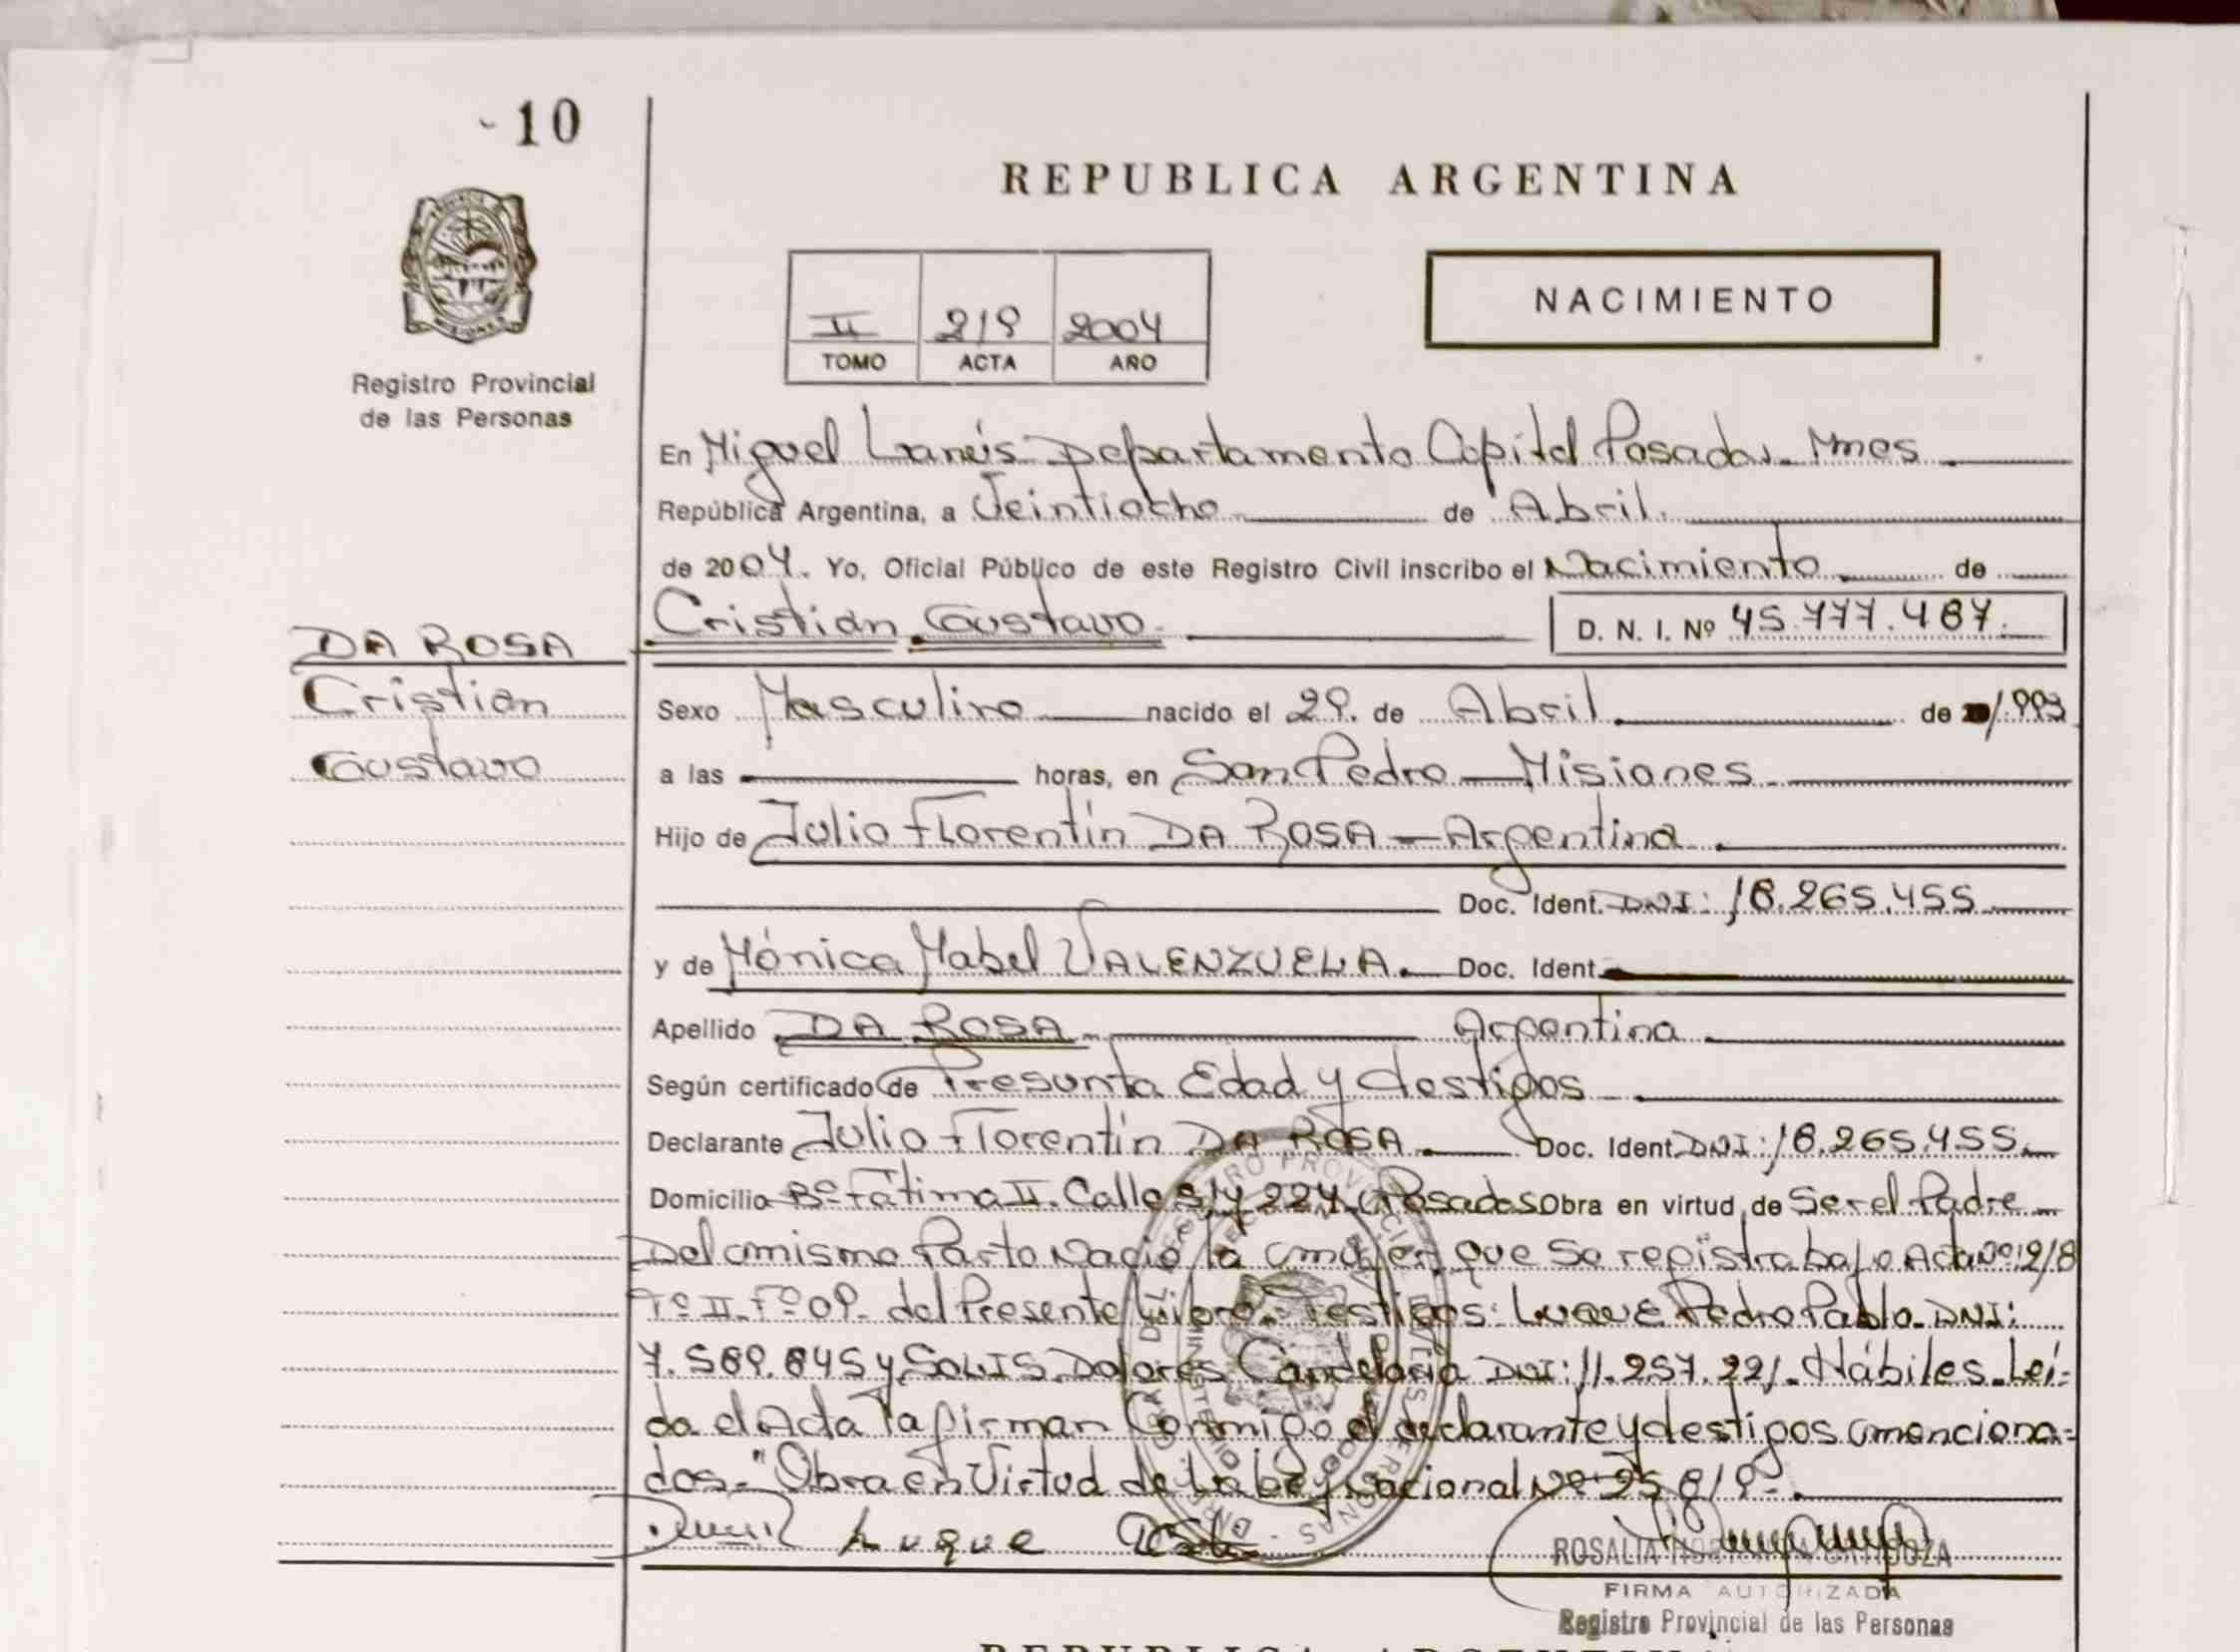 10
REPUBLICA ARGENTINA
NACIMIENTO
II 219 2004
TOMO ACTA AÑO
Registro Provincial
de las Personas
En Miguel Lanús Departamento Capital Posadas. Mnes
República Argentina, a Veintiocho de Abril.
de 2004. Yo, Oficial Público de este Registro Civil inscribo el Nacimiento de
Cristian Gustavo. D. N. I. Nº 45.777.487.
DA ROSA
Cristian
Gustavo
Sexo Masculino nacido el 29. de Abril de 1.993
a las horas, en San Pedro - Misiones
Hijo de Julio Florentín DA ROSA - Argentina
Doc. Ident. DNI: 18.265.455
y de Mónica Mabel VALENZUELA. Doc. Ident.
Apellido DA ROSA Argentina
Según certificado de Presunta Edad y testigos
Declarante Julio Florentín DA ROSA Doc. Ident. DNI: 18.265.455
Domicilio Bº Fátima II. Calle 224 Posadas Obra en virtud de Ser el Padre
Del mismo Parto Nació la mujer que se registra bajo Acta Nº 218
Tº II. Fº 09. del Presente Libro. Testigos: LUQUE Pedro Pablo. DNI:
7.589.845 y SOLIS Dolores Candelaria DNI: 11.257.221. Hábiles. Leí-
da el Acta la firman Conmigo el declarante y testigos menciona-
dos. "Obra en Virtud de la Ley Nacional Nº 25.819.
Luque
ROSALIA
FIRMA AUTORIZADA
Registro Provincial de las Personas